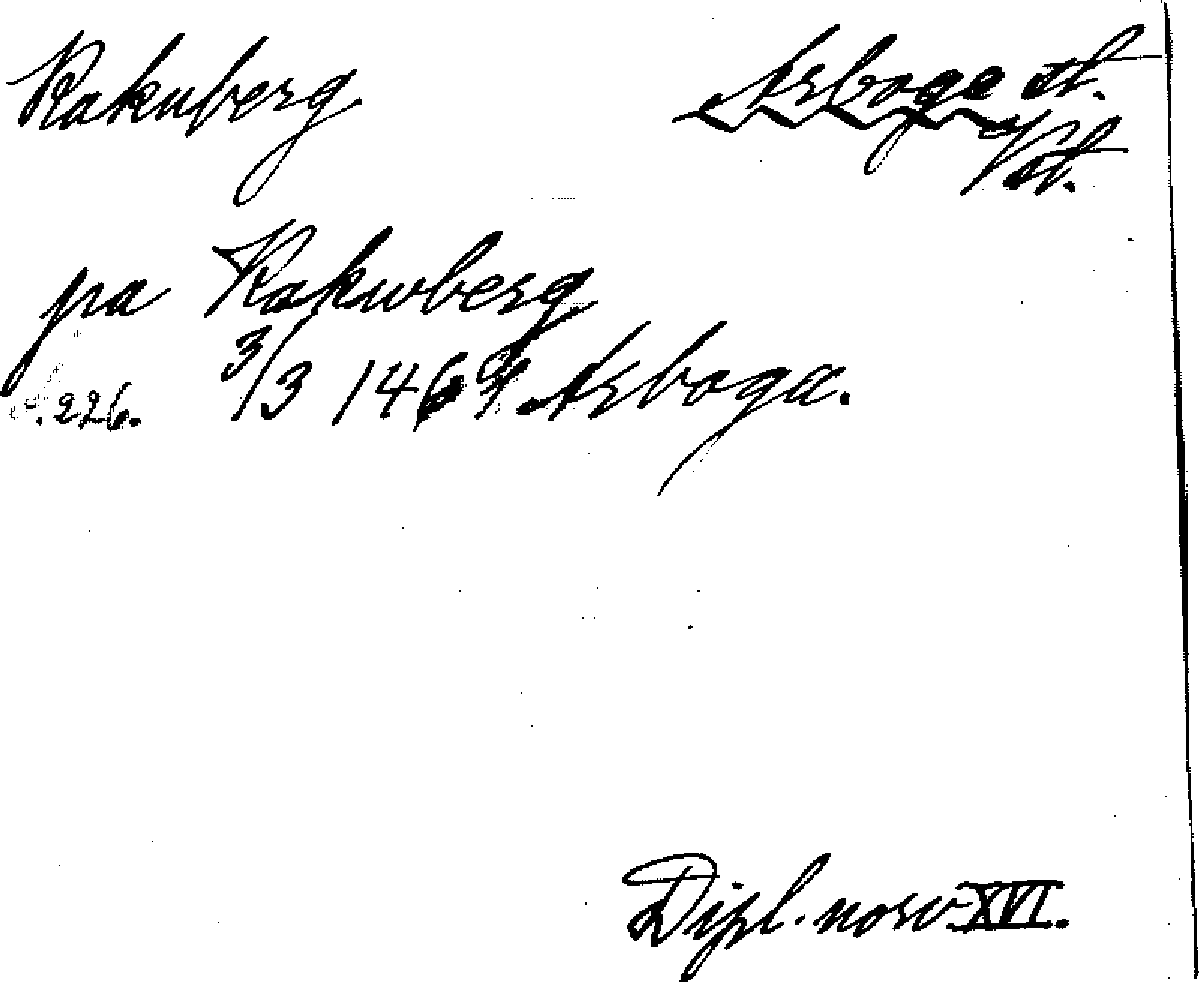 Rakuberg Arboga st.
Vst.
pa Rakwberg
s. 226. 3/3 1469 Arboga.
Dipl. norv XVI.